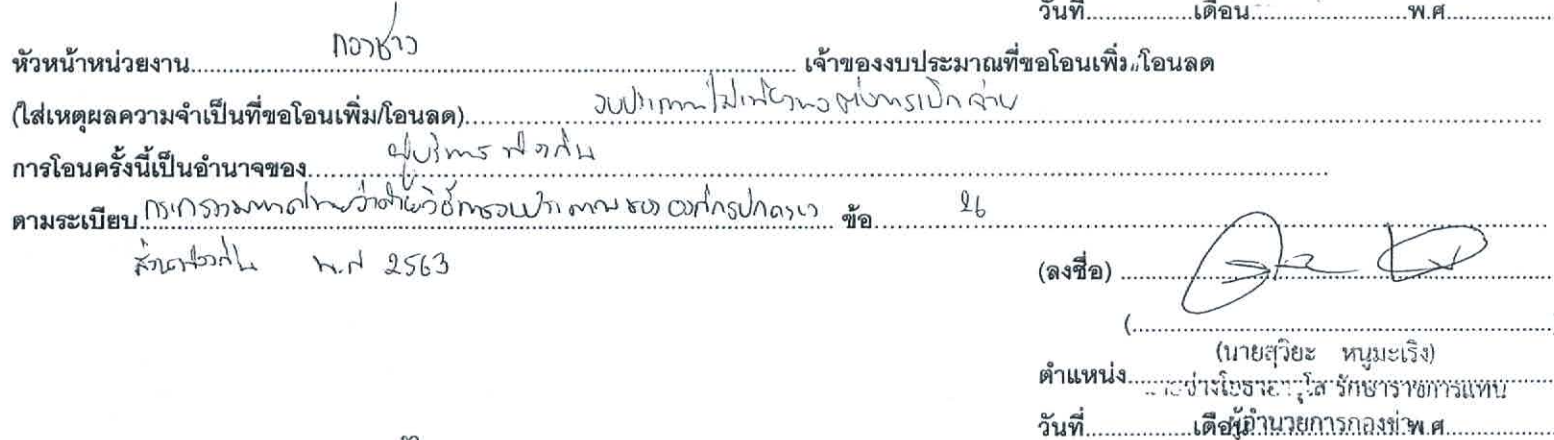 วันที่..................เดือน..........................พ.ศ.................
หัวหน้าหน่วยงาน กองช่าง เจ้าของงบประมาณที่ขอโอนเพิ่ม/โอนลด
(ใส่เหตุผลความจำเป็นที่ขอโอนเพิ่ม/โอนลด) งบประมาณไม่เพียงพอต่อการเบิกจ่าย
การโอนครั้งนี้เป็นอำนาจของ ผู้บริหารท้องถิ่น
ตามระเบียบ กระทรวงมหาดไทยว่าด้วยวิธีการงบประมาณขององค์กรปกครอง ข้อ 26
ส่วนท้องถิ่น พ.ศ 2563
(ลงชื่อ)
(นายสุวิยะ หนูมะเริง)
ตำแหน่ง นายช่างโยธาอาวุโส รักษาราชการแทน
ผู้อำนวยการกองช่าง
วันที่..................เดือน..........................พ.ศ.................